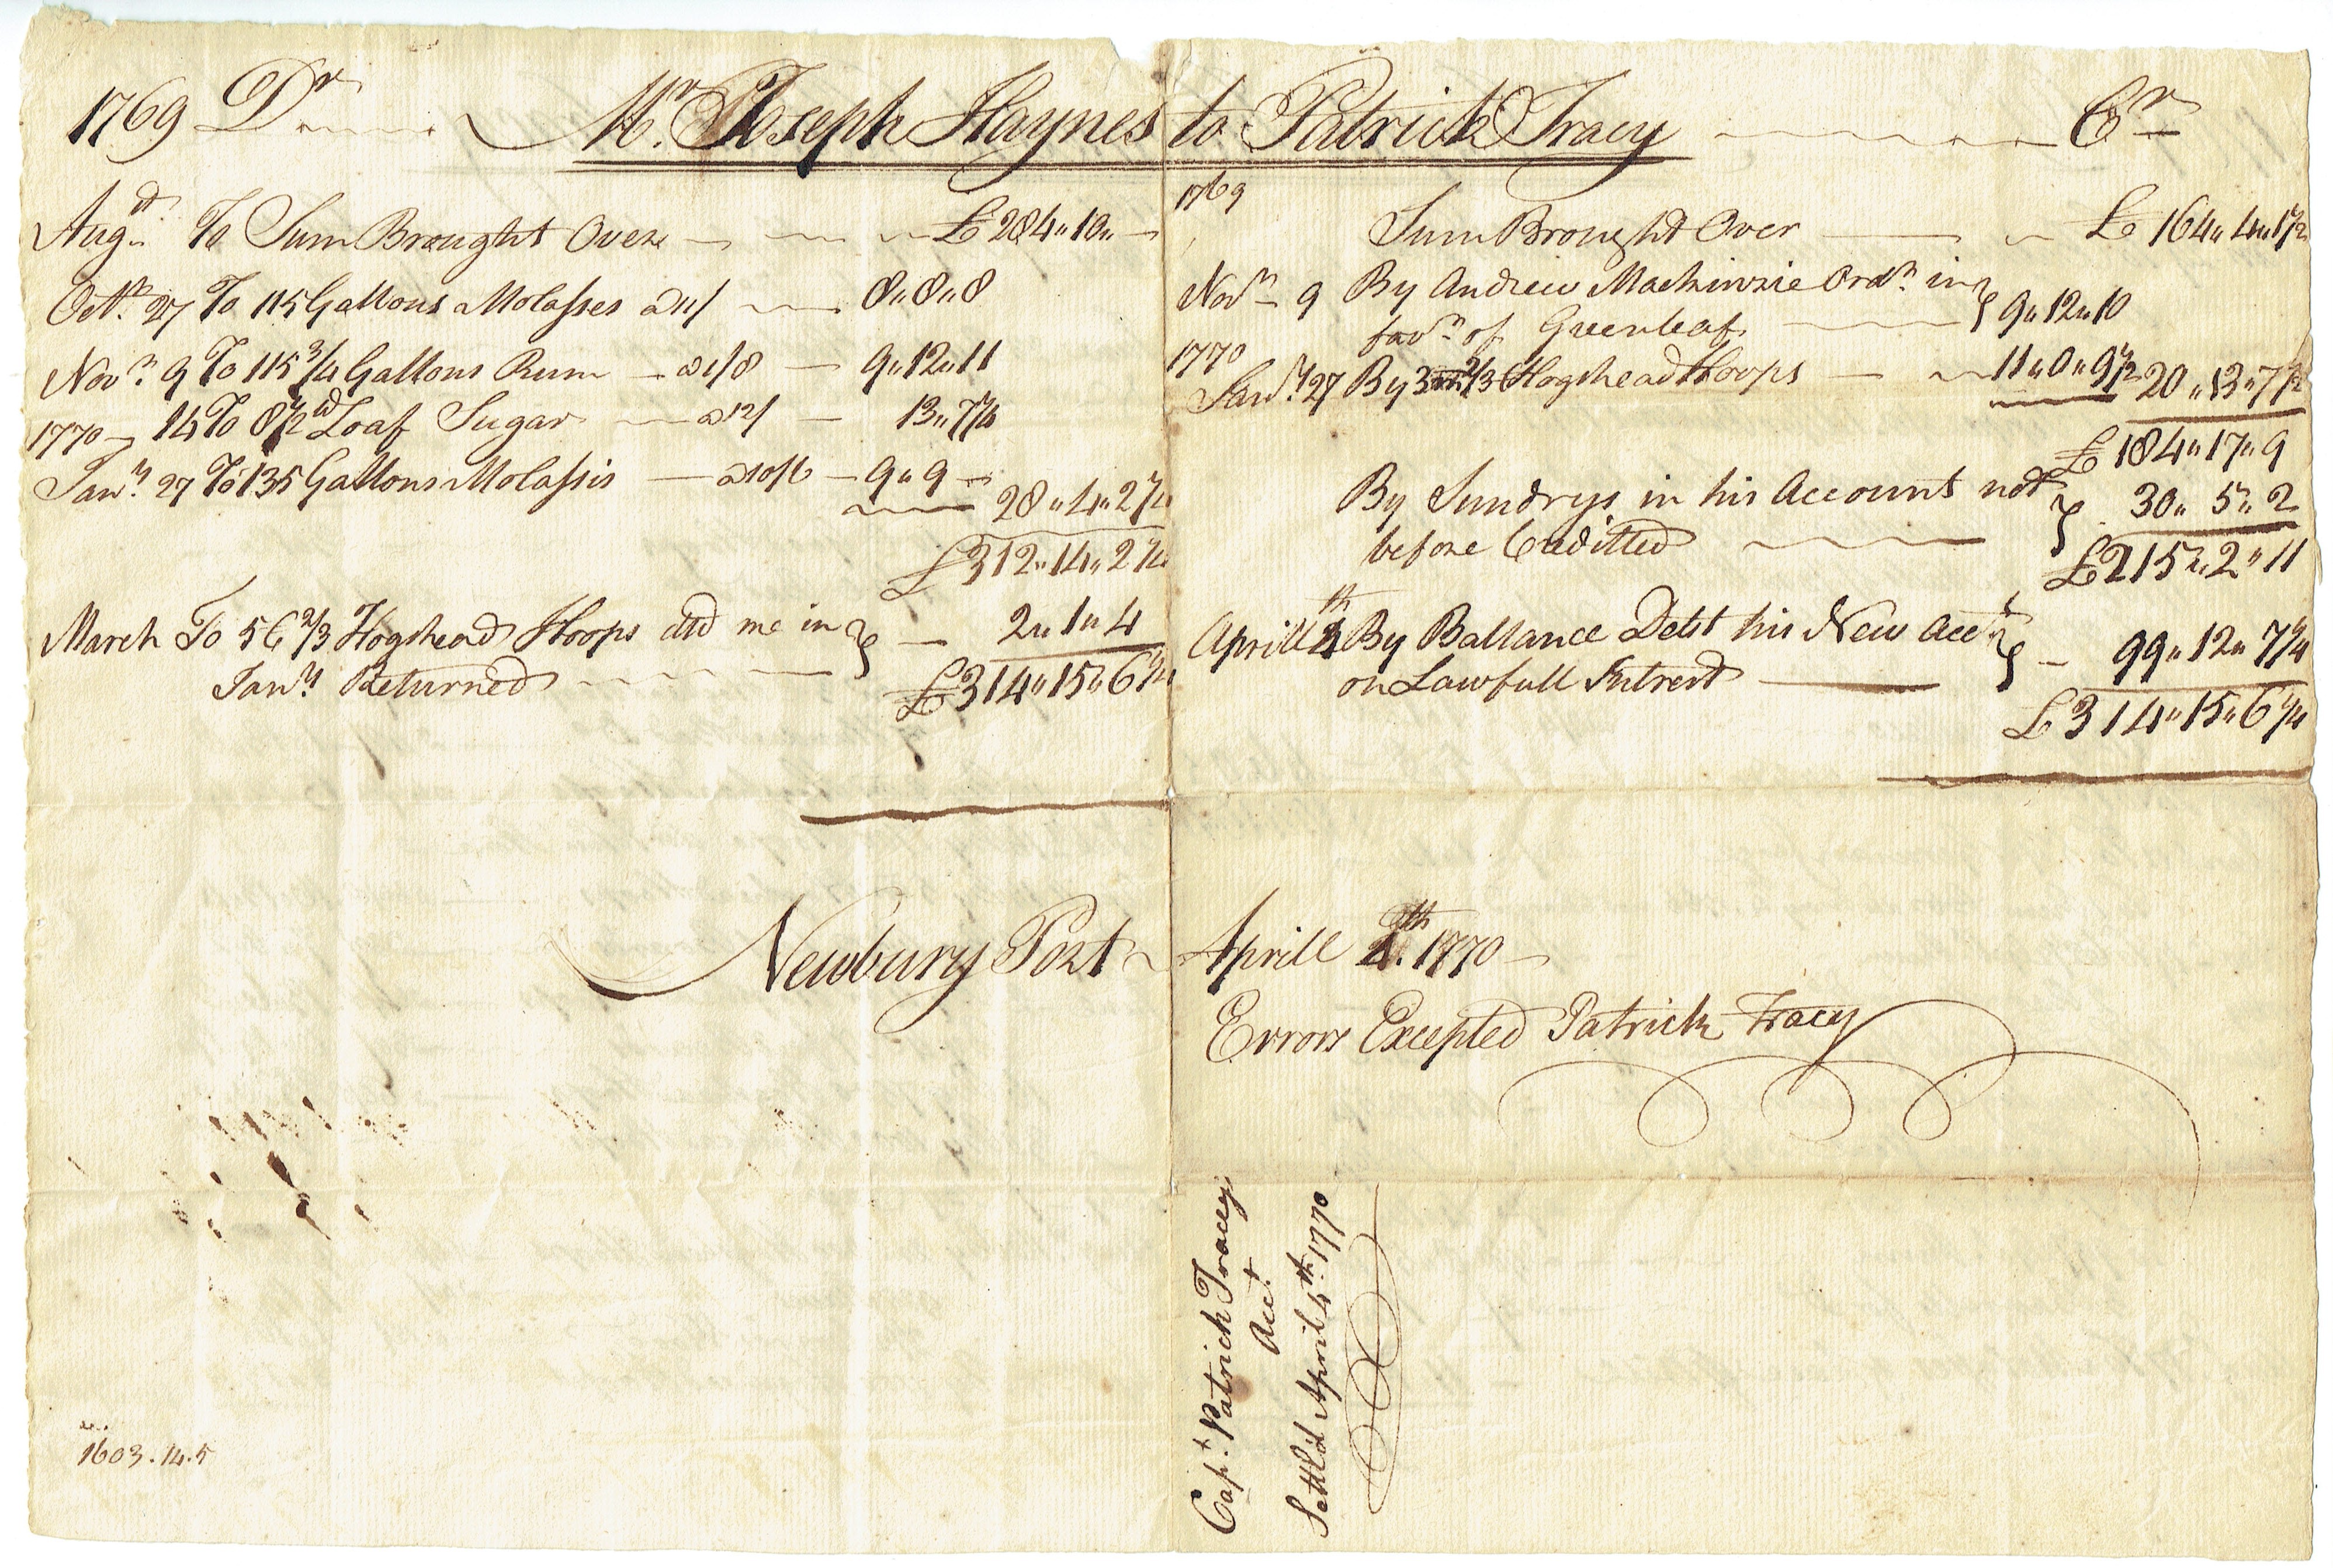 1769 Dr Mr. Joseph Haynes to Patrick Tracy Cr
Augst To Sum Brought Over £ 284,, 10,, —
Octr. 27 To 115 Gallons Molasses a 11/ 8,, 8,, 8
Novr. 9 To 115 3/4 Gallons Rum a 1/8 9,, 12,, 11
1770 14 To 8 1/2 ld Loaf Sugar a 12/ 13,, 7 1/4
Jany. 27 To 135 Gallons Molassis a 10/6 9,, 9 —
28,, 4,, 2 1/4
£ 312,, 14,, 2 1/4
March To 56 2/3 Hogshead Hoops Ctd me in
Jany Returned 2,, 1,, 4
£ 314,, 15,, 6 1/4
1769
Sum Brought Over £ 164,, 4,, 1 1/2
Novr 9 By Andrew Mackinzie Ordr. in
favr of Greenleaf 9,, 12,, 10
1770
Jany. 27 By 3 2/3 Hogshead Hoops 11,, 0,, 9 1/2 20,, 13,, 7 1/2
£ 184,, 17,, 9
By Sundrys in his Account not
before Creditted 30,, 5,, 2
£ 215,, 2,, 11
Aprill 4th By Ballance Debt his New Acct
on Lawfull Intrest 99,, 12,, 7 1/4
£ 314,, 15,, 6 1/4
Newbury Port Aprill 4th. 1770
Errors Excepted Patrick Tracy
Capt. Patrick Tracey
Acct.
Settld April 4th. 1770
1603.14.5